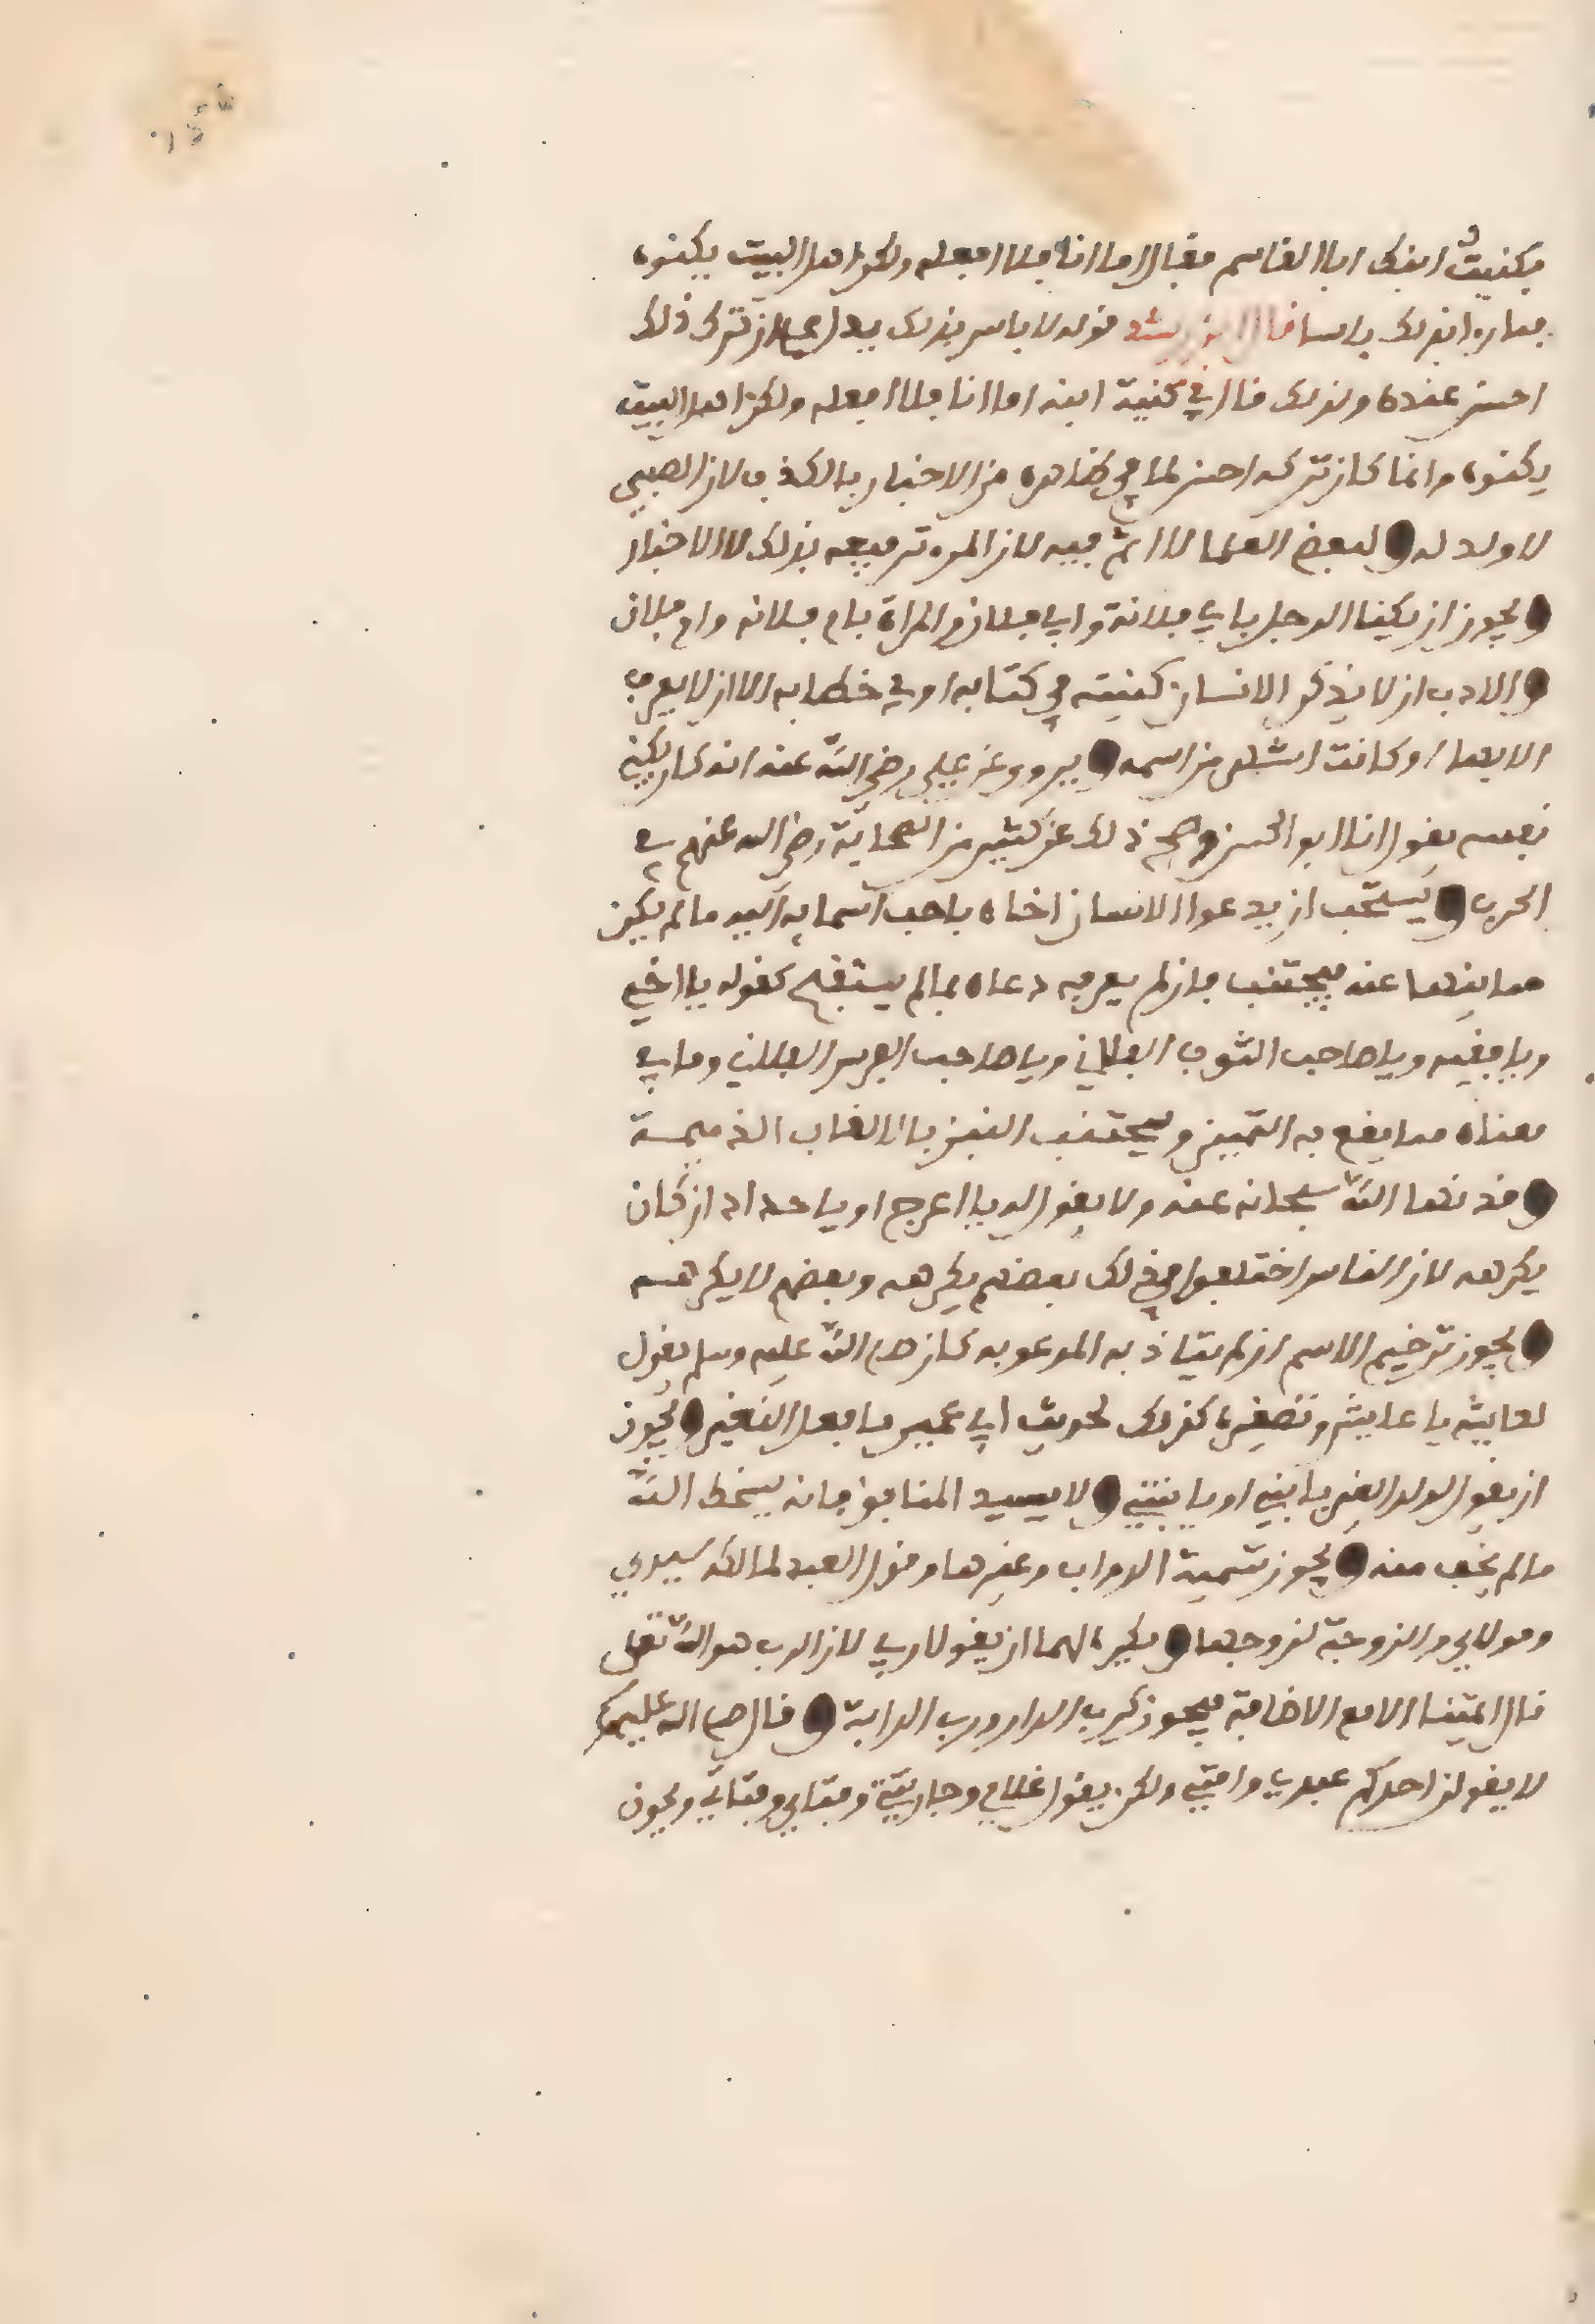 فكنيت ابنك ابا القاسم فقال اما انا فلا افعله ولكن اهل البيت يكنونه
فما ارى بذلك باسا قال ابن رشد قوله لا باس بذلك يدل على ان ترك ذلك
احسن عنده ولذلك قال في كنية ابنه اما انا فلا افعله ولكن اهل البيت
يكنونه وانما كان تركه احسن لما في ظاهره من الاخبار بالكذب لان الصبي
لا ولد له ولبعض العلما لا اثم فيه لان المراد ترفيعه بذلك لا الاخبار
ويجوز ان يكنا الرجل بابي فلانة وابي فلان والمراة بام فلانه وام فلان
والادب ان لا يذكر الانسان كنيته في كتابه او في خطابه الا ان لا يعرف
الا بها او كانت اشهر من اسمه ويروى عن علي رضي الله عنه انه كان يكني
نفسه يقول انا ابو الحسن وصح ذلك عن كثير من الصحابة رضي الله عنهم في
الحرب ويستحب ان يدعوا الانسان اخاه باحب اسمايه اليه ما لم يكن
مما ينها عنه فيجتنب فان لم يعرفه دعاه بما لم يستقبح كقوله يا اخي
ويا فقيه ويا صاحب الثوب الفلاني ويا صاحب الفرس الفلاني وما في
معناه مما يقع به التمييز ويجتنب النبز بالالقاب الذميمة
وقد نها الله سبحانه عنه ولا يقول له يا اعرج او يا حداد ان كان
يكرهه لان الناس اختلفوا في ذلك بعضهم يكرهه وبعضهم لا يكرهه
ويجوز ترخيم الاسم ان لم يتاذ به المدعو به كان صلى الله عليه وسلم يقول
لعايشة يا عايش وتصغيره كذلك لحديث ابي عمير ما فعل النغير ويجوز
ان يقول لولد الغير يا بني او يا بنتي ولا يسيد المنافق فانه يسخط الله
ما لم يخف منه ويجوز تسمية الدواب وغيرها وقول العبد لمالكه سيدي
ومولاي والزوجة لزوجها ويكره لهما ان يقولا ربي لان الرب هو الله تعلى
قال ايمتنا الا مع الاضافة فيجوز كرب الدار ورب الدابة وقال صلى الله عليه وسلم
لا يقولن احدكم عبدي وامتي ولكن يقول غلامي وجاريتي وفتاي وفتاتي ويجوز